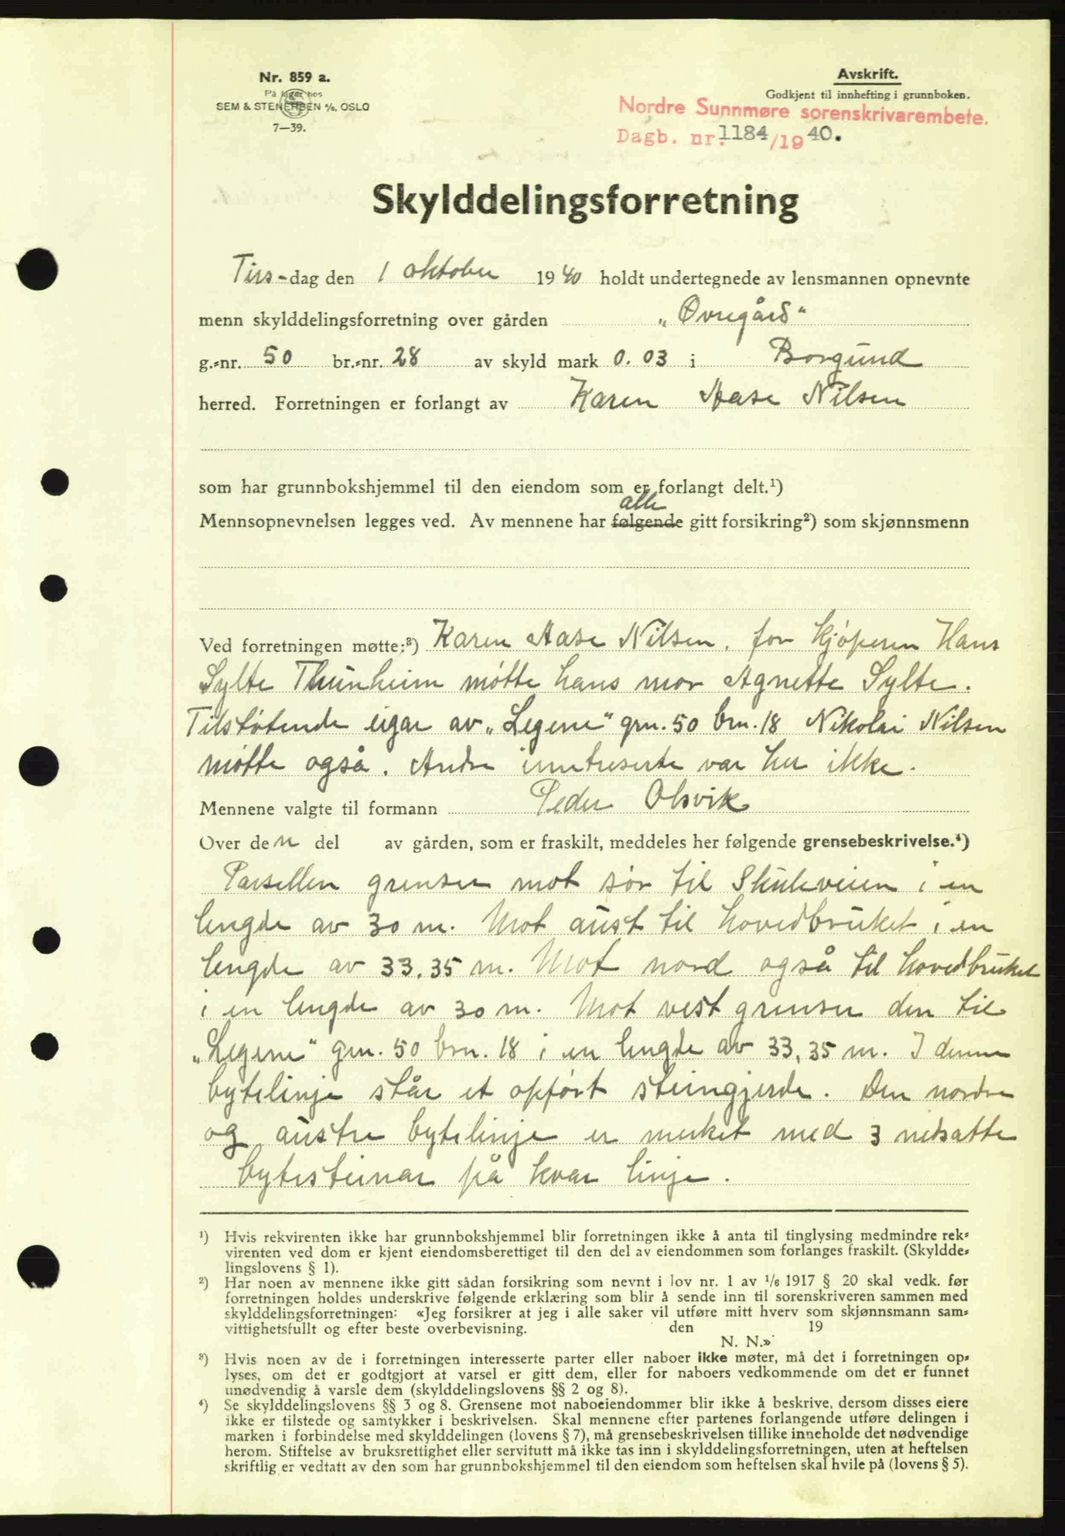 Nr. 859 a.
På lager hos
SEM & STENERSEN A/S, OSLO
7—39.
Avskrift.
Godkjent til innhefting i grunnboken.
Nordre Sunnmøre sorenskrivarembete.
Dagb. nr. 1184/1940.
Skylddelingsforretning
Tirs-dag den 1 oktober 1940 holdt undertegnede av lensmannen opnevnte
menn skylddelingsforretning over gården „Øvregård“
g.-nr. 50 br.-nr. 28 av skyld mark 0.03 i Borgund
herred. Forretningen er forlangt av Karen Aase Nilsen
som har grunnbokshjemmel til den eiendom som er forlangt delt.¹)
alle
Mennsopnevnelsen legges ved. Av mennene har følgende gitt forsikring²) som skjønnsmenn
Ved forretningen møtte:³) Karen Aase Nilsen, for kjøperen Hans
Sylte Thunheim møtte hans mor Agnette Sylte.
Tilstøtende eigar av „Legene“ grn. 50 brn. 18 Nikolai Nilsen
møtte også. Andre inntreserte var her ikke.
Mennene valgte til formann Peder Olsvik
Over den del av gården, som er fraskilt, meddeles her følgende grensebeskrivelse.⁴)
Parsellen grenser mot sør til Skuleveien i en
lengde av 30 m. Mot aust til hovedbruket i en
lengde av 33,35 m. Mot nord også til hovedbruket
i en lengde av 30 m. Mot vest grenser den til
„Legene“ grn. 50 brn. 18 i en lengde av 33,35 m. I denne
bytelinje står et oppført steingjerde. Den nordre
og austre bytelinje er merket med 3 netsatte
bytesteinar på kvar linje.
¹) Hvis rekvirenten ikke har grunnbokshjemmel blir forretningen ikke å anta til tinglysing medmindre rek-
virenten ved dom er kjent eiendomsberettiget til den del av eiendommen som forlanges fraskilt. (Skyldde-
lingslovens § 1).
²) Har noen av mennene ikke gitt sådan forsikring som nevnt i lov nr. 1 av 1/6 1917 § 20 skal vedk. før
forretningen holdes underskrive følgende erklæring som blir å sende inn til sorenskriveren sammen med
skylddelingsforretningen: «Jeg forsikrer at jeg i alle saker vil utføre mitt hverv som skjønnsmann sam-
vittighetsfullt og efter beste overbevisning. den 19
N. N.»
³) Hvis noen av de i forretningen interesserte parter eller naboer ikke møter, må det i forretningen op-
lyses, om det er godtgjort at varsel er gitt dem, eller for naboers vedkommende om det er funnet
unødvendig å varsle dem (skylddelingslovens §§ 2 og 8).
⁴) Se skylddelingslovens §§ 3 og 8. Grensene mot naboeiendommer blir ikke å beskrive, dersom disses eiere
ikke er tilstede og samtykker i beskrivelsen. Skal mennene efter partenes forlangende utføre delingen i
marken i forbindelse med skylddelingen (lovens § 7), må grensebeskrivelsen tillike inneholde det nødvendige
herom. Stiftelse av bruksrettighet eller servitutt må ikke tas inn i skylddelingsforretningen, uten at heftelsen
skriftlig er vedtatt av den som har grunnbokshjemmel til den eiendom som heftelsen skal hvile på (lovens § 5).